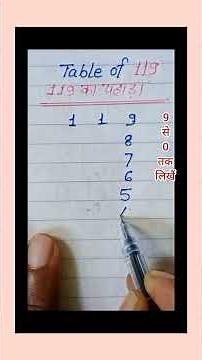 Table of 119
119 का पहाड़ा
1 1 9
8
7
6
5
9
से
0
तक
लिखें